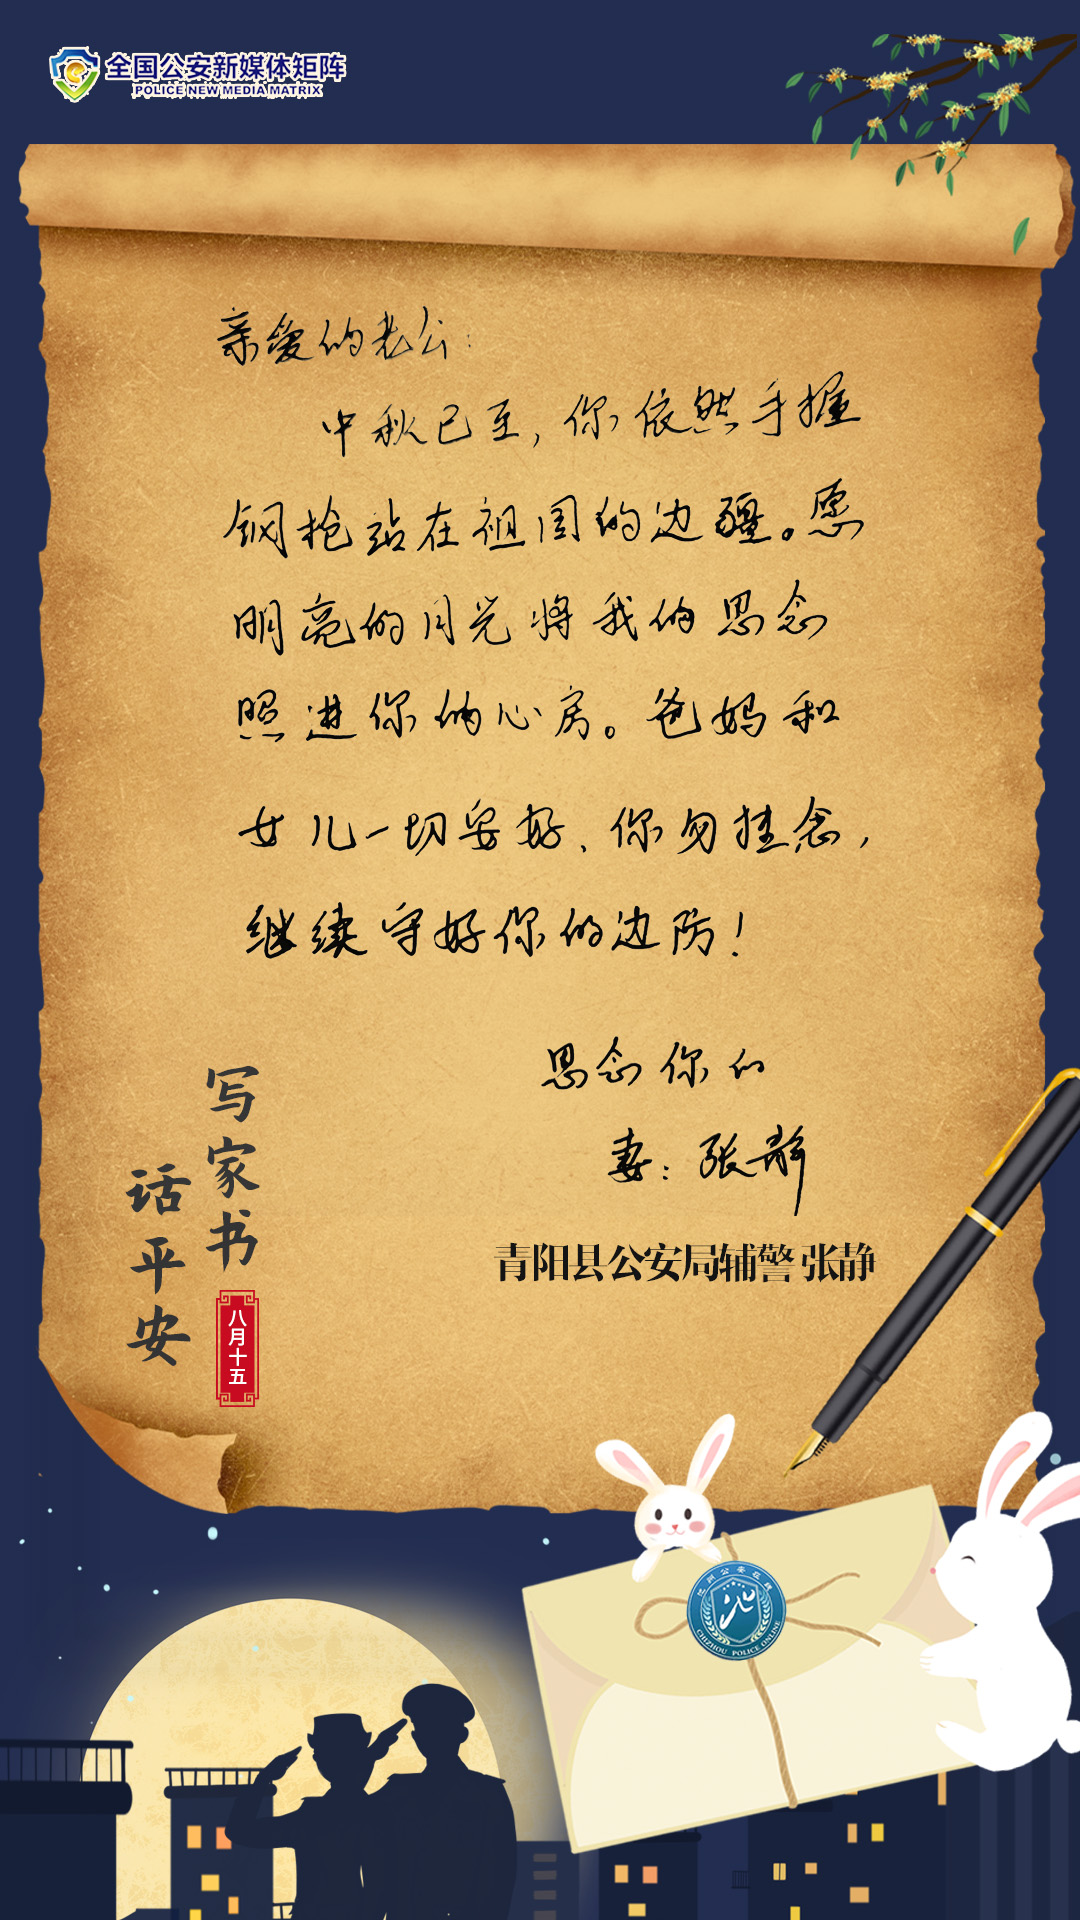 全国公安新媒体矩阵
POLICE NEW MEDIA MATRIX
亲爱的老公：
中秋已至，你依然手握
钢枪站在祖国的边疆。愿
明亮的月光将我的思念
照进你的心房。爸妈和
女儿一切安好、你勿挂念，
继续守好你的边防！
思念你的
妻：张静
青阳县公安局辅警 张静
写家书
话平安
八月十五
池州公安在线
CHIZHOU POLICE ONLINE